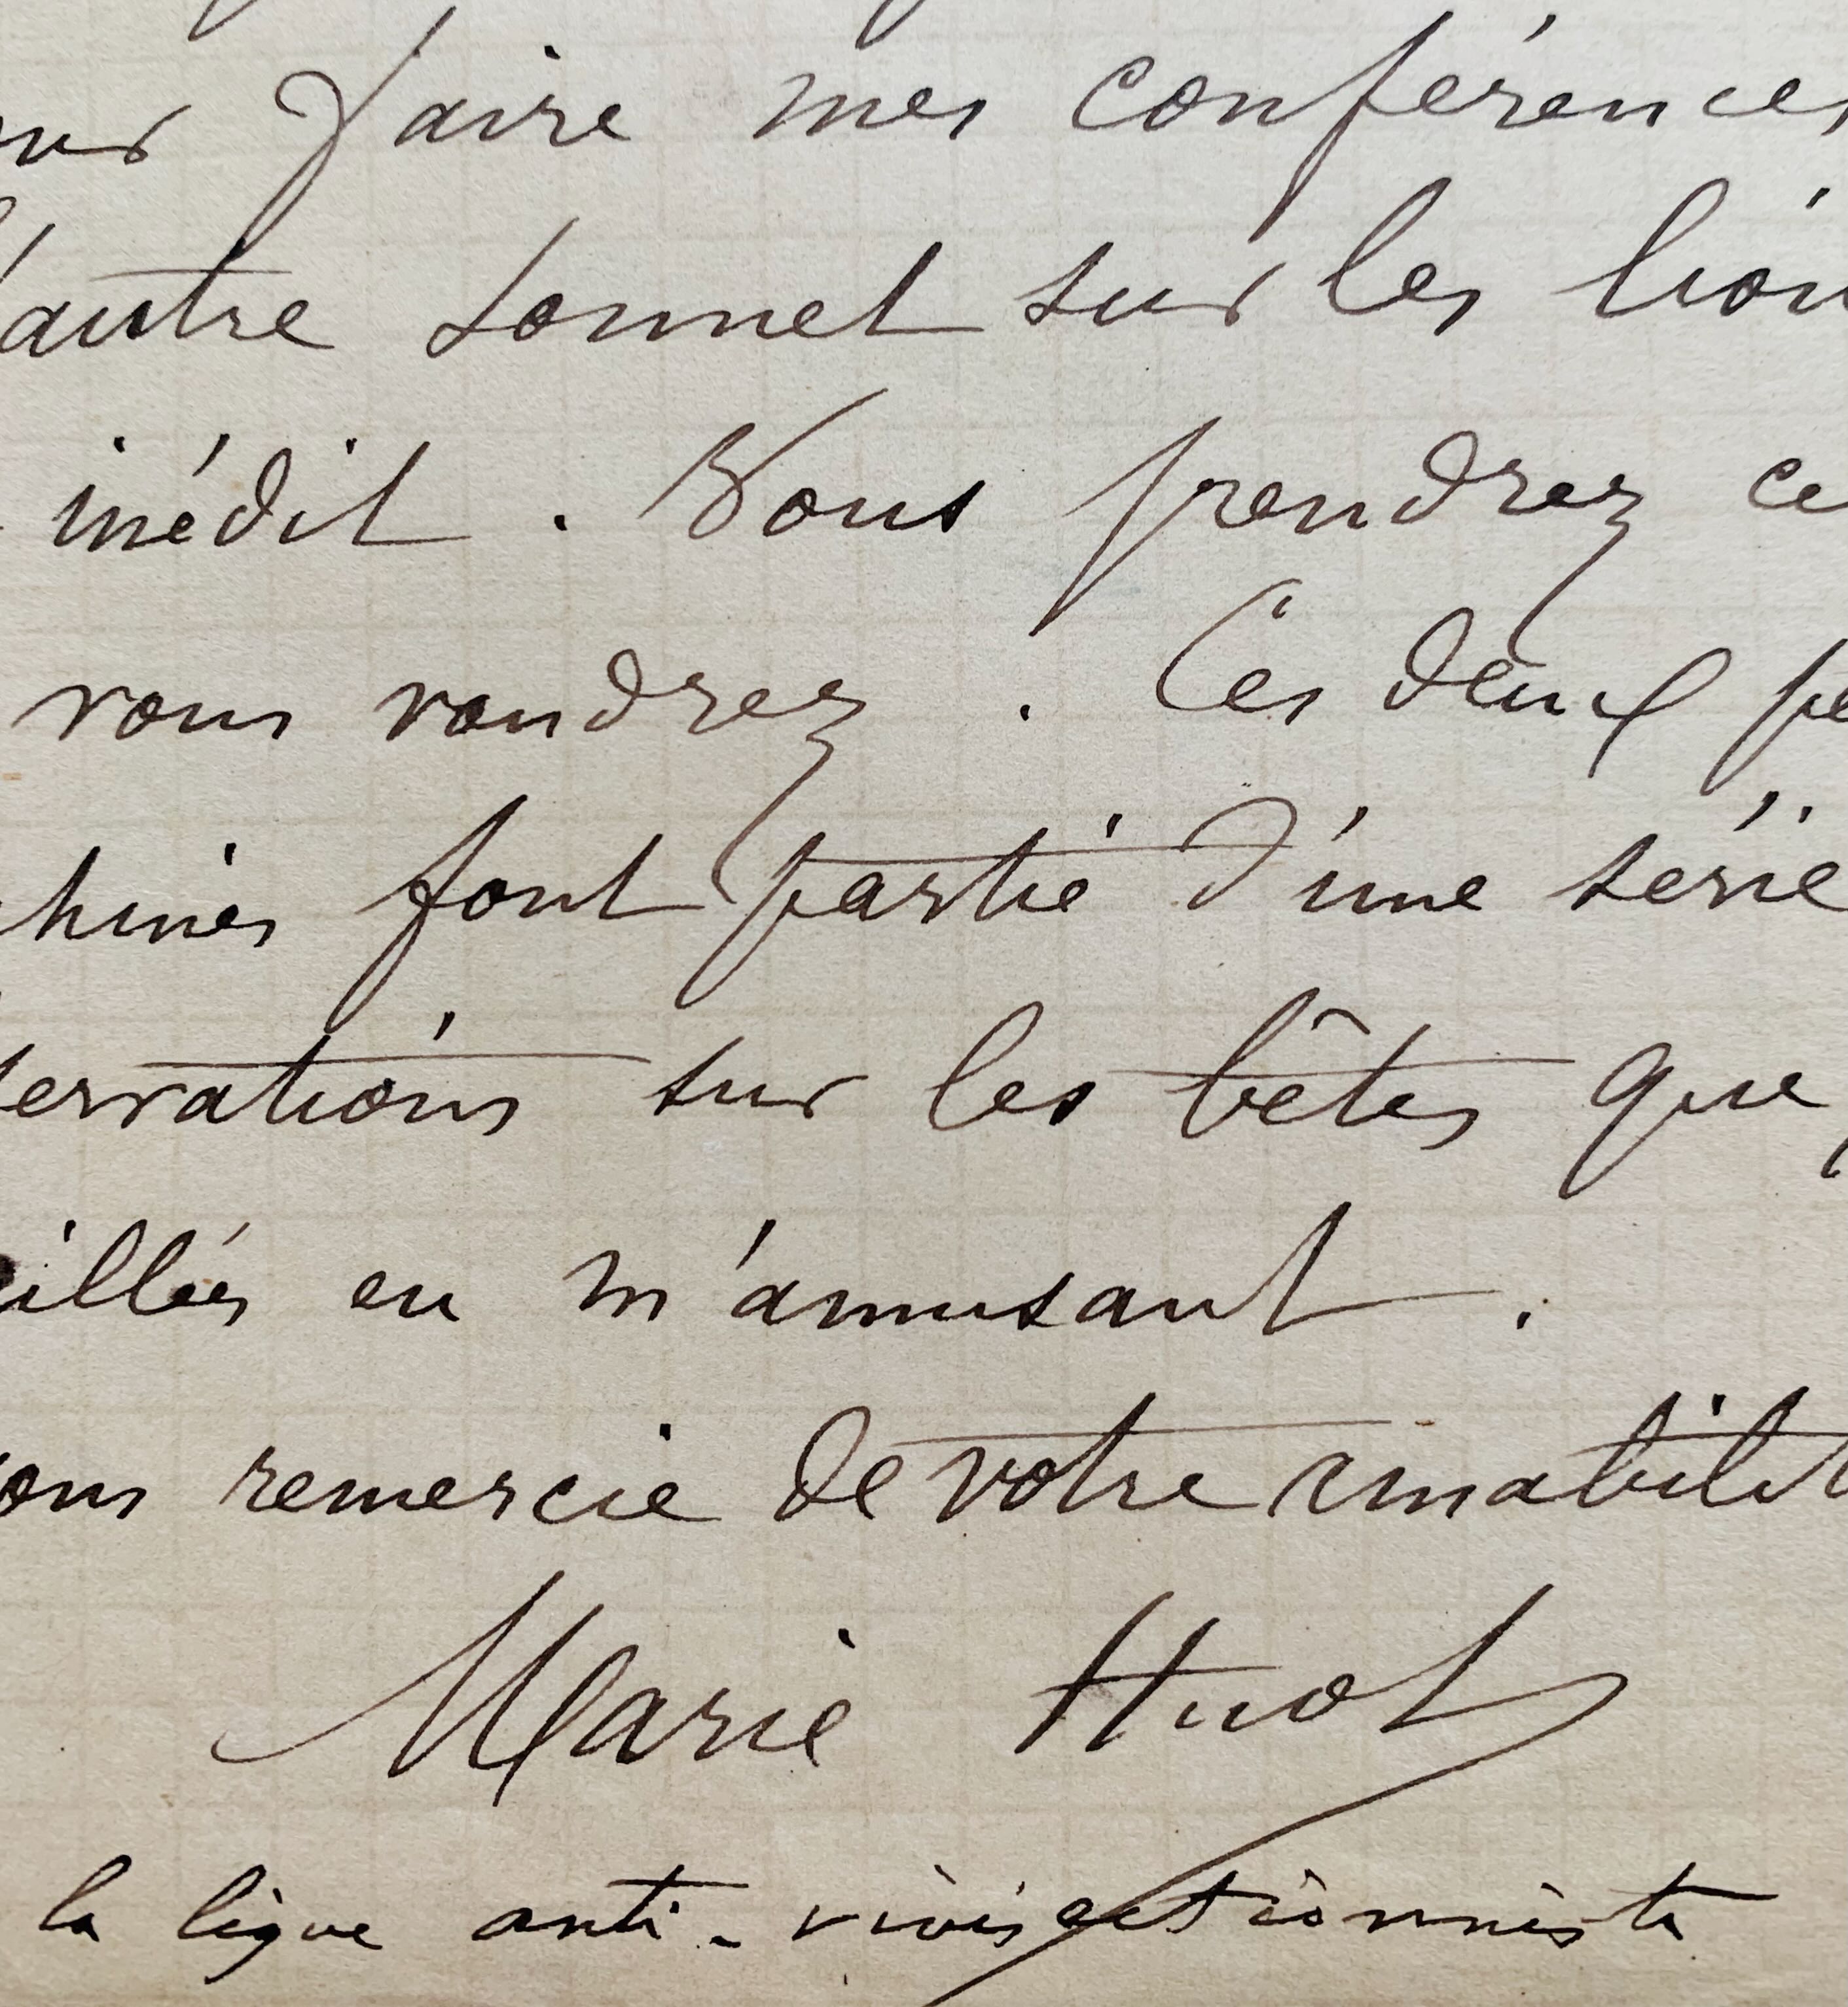 our faire mes conférences
l'autre sonnet sur les lion
inédit . Vous prendrez ce
vous voudrez . Ces deux pe
chines font partie d'une série
servations sur les bêtes que
eillées en m'amusant .
vous remercie de votre amabilit
Marie Huot
la ligue anti-vivisectionniste